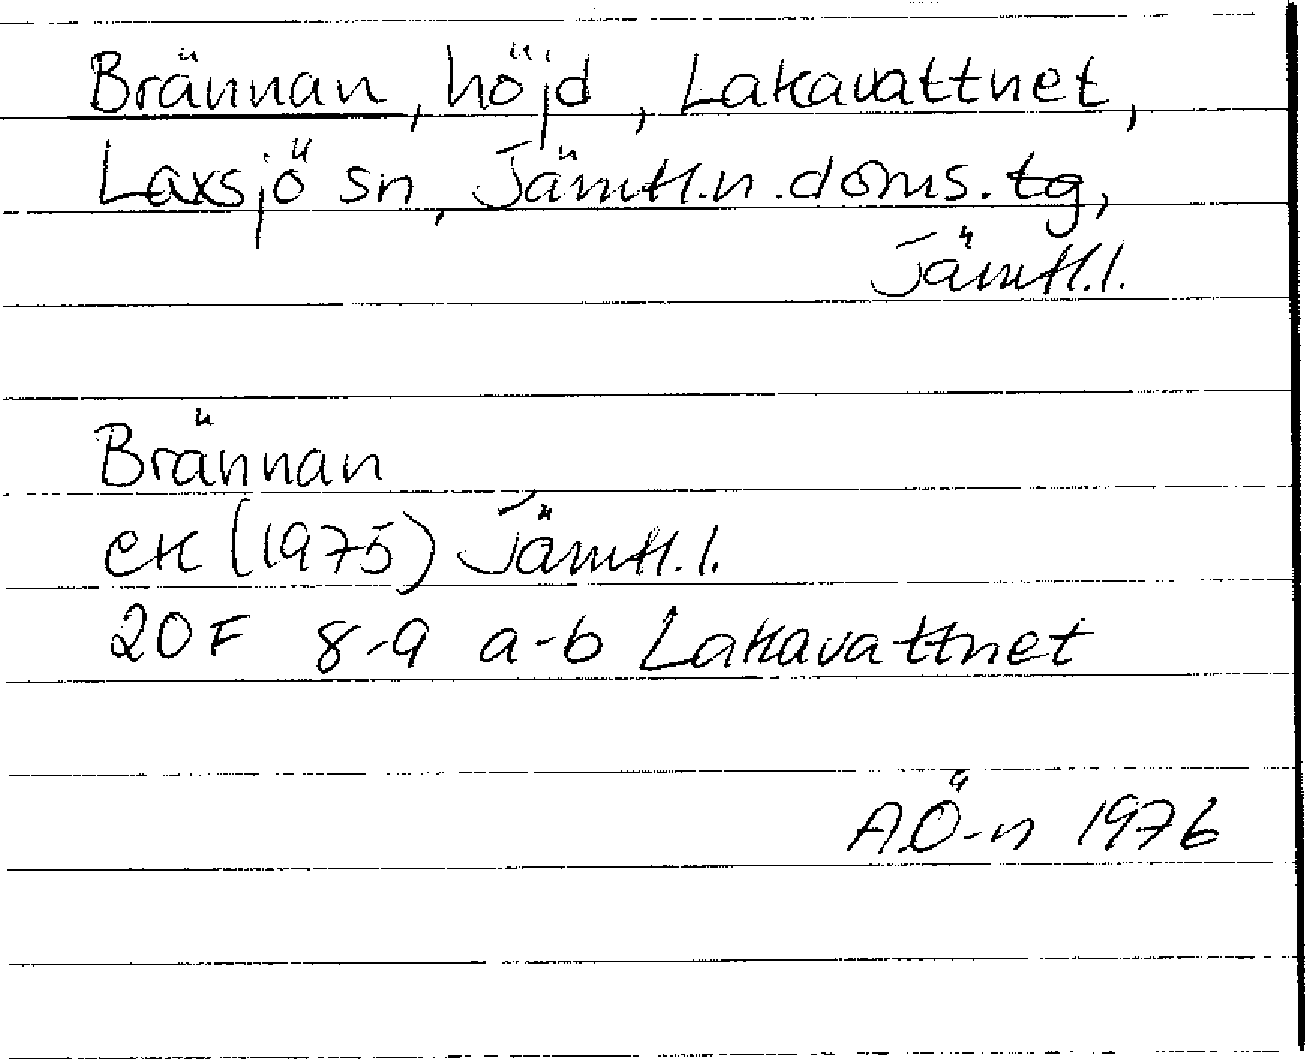 Brännan, höjd, Lakavattnet,
Laxsjö sn, Jämtl.n.doms.tg,
Jämtl.l.
Brännan
ek (1975) Jämtl.l.
20F 8-9 a-b Lakavattnet
A.Ö-n 1976